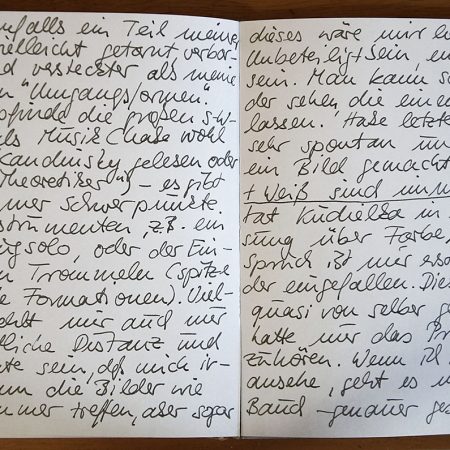 falls ein Teil meiner
vielleicht getarnt verbor-
d versteckter als meine
n "Umgangsformen".
pfinde die großen s-w-
ls Musik Chase wohl
Kandinsky gelesen oder
Theoretiker") – es gibt
mer schwerpunkte.
strumenten, z.B. ein
gsolo, oder der Ein-
n Trommeln (spitze
e Formationen). Viel-
eht mir auch nur
tliche Distanz und
te sein, daß mich ir-
nn die Bilder wie
mmer treffen, aber sogar
dieses wäre mir
Unbeteiligt sein, en
sein. Man kann s
der sehen die einen
lassen. Habe letzte
sehr spontan un
ein Bild gemacht
+ Weiß sind imm
tat Kudielka in
sung über Farbe,
spruch ist mir ers
der eingefallen. Die
quasi von selber g
hatte nur das Pr
zuhören. Wenn ich
ansehe, geht es
Band – genauer ges